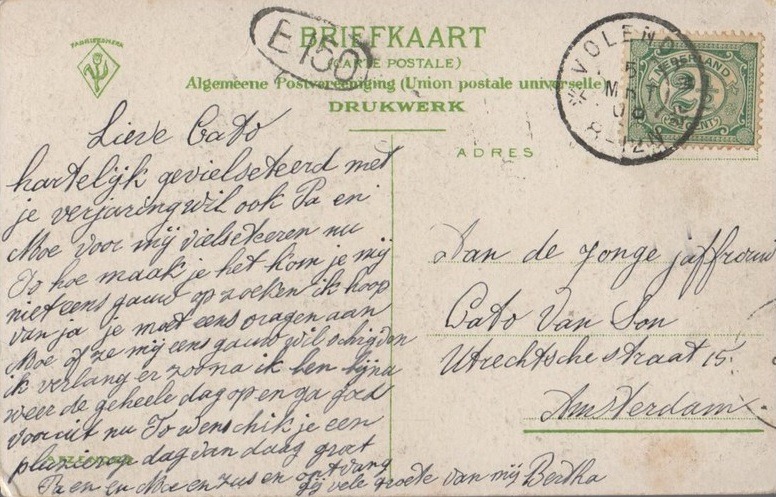 FABRIEKSMERK
E 150
BRIEFKAART
(CARTE POSTALE)
Algemeene Postvereeniging (Union postale universelle)
DRUKWERK
VOLEND
5
MRT
08
8-12V
NEDERLAND
2½
CENT
ADRES
Lieve Cato
hartelijk gevielseteerd met
je verjaring wil ook Pa en
Moe voor mij vielseteeren nu
To hoe maak je het kom je mij
niet eens gauw op zoeken ik hoop
van ja je moet eens vragen aan
Moe of ze mij eens gauw wil schijven
ik verlang er zoo na ik ben bijna
weer de geheele dag op en ga goed
vooruit nu To wensch ik je een
pluzierige dag van daag groet
Pa en en Moe en zus en ontvang
jij vele groete van mij Bertha
Aan de Jonge jaffrouw
Cato Van Son
Utrechtsche straat 15.
Amsterdam